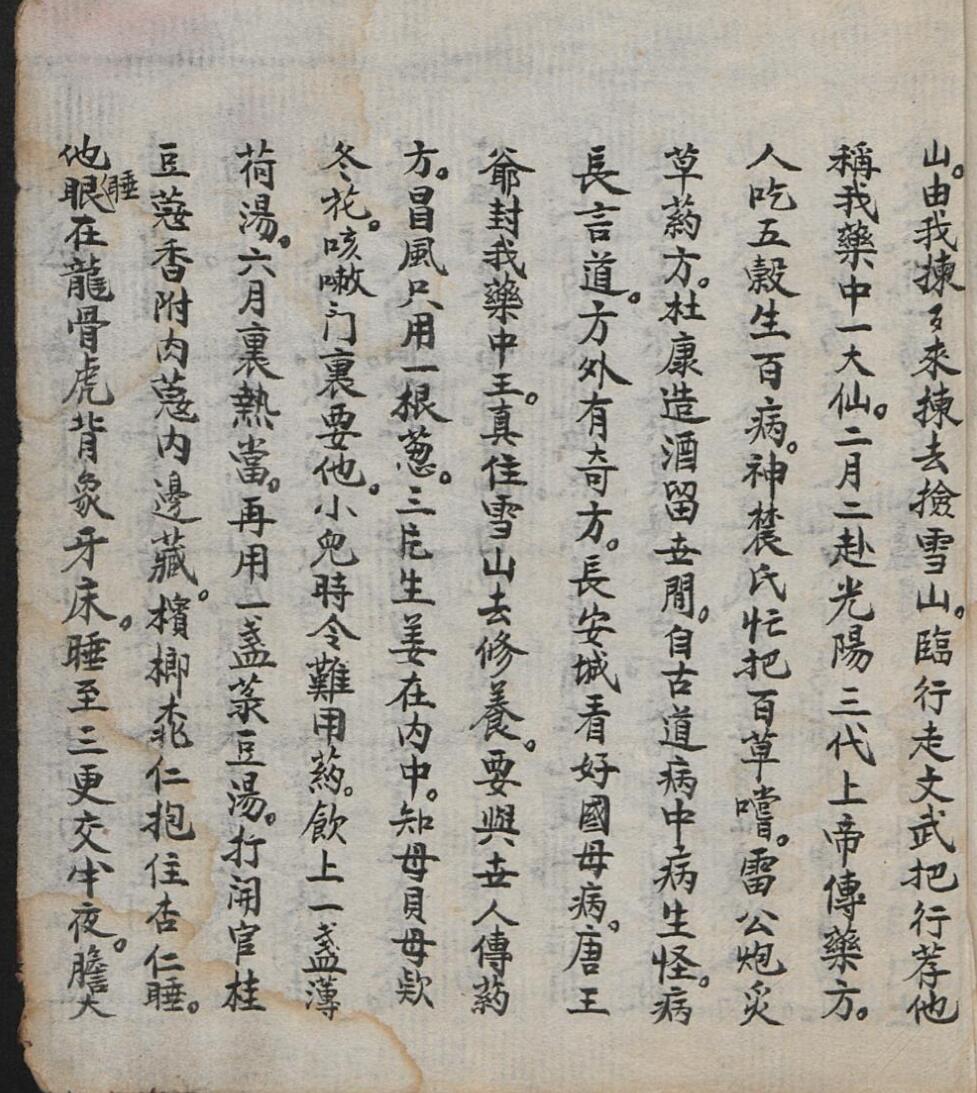 山。由我揀々來揀去撿雪山。臨行走文武把行荐他
稱我藥中一大仙。二月二赴光陽三代上帝傳藥方。
人吃五穀生百病。神農氏忙把百草嚐。雷公炮炙
草葯方。杜康造酒留世間。自古道病中病生怪。病
長言道。方外有奇方。長安城看好國母病。唐王
爺封我藥中王。真住雪山去修養。要與世人傳葯
方。昌風只用一根葱。三片生姜在內中。知母貝母欵
冬花。咳嗽门裏要他。小兒時令難用葯。飲上一盞薄
荷湯。六月裏熱當。再用一盞菉豆湯。打開官桂
豆蔻香附內蔻內邊藏。檳榔桃仁抱住杏仁睡。
他睡眼在龍骨虎背象牙床。睡至三更交半夜。膽大